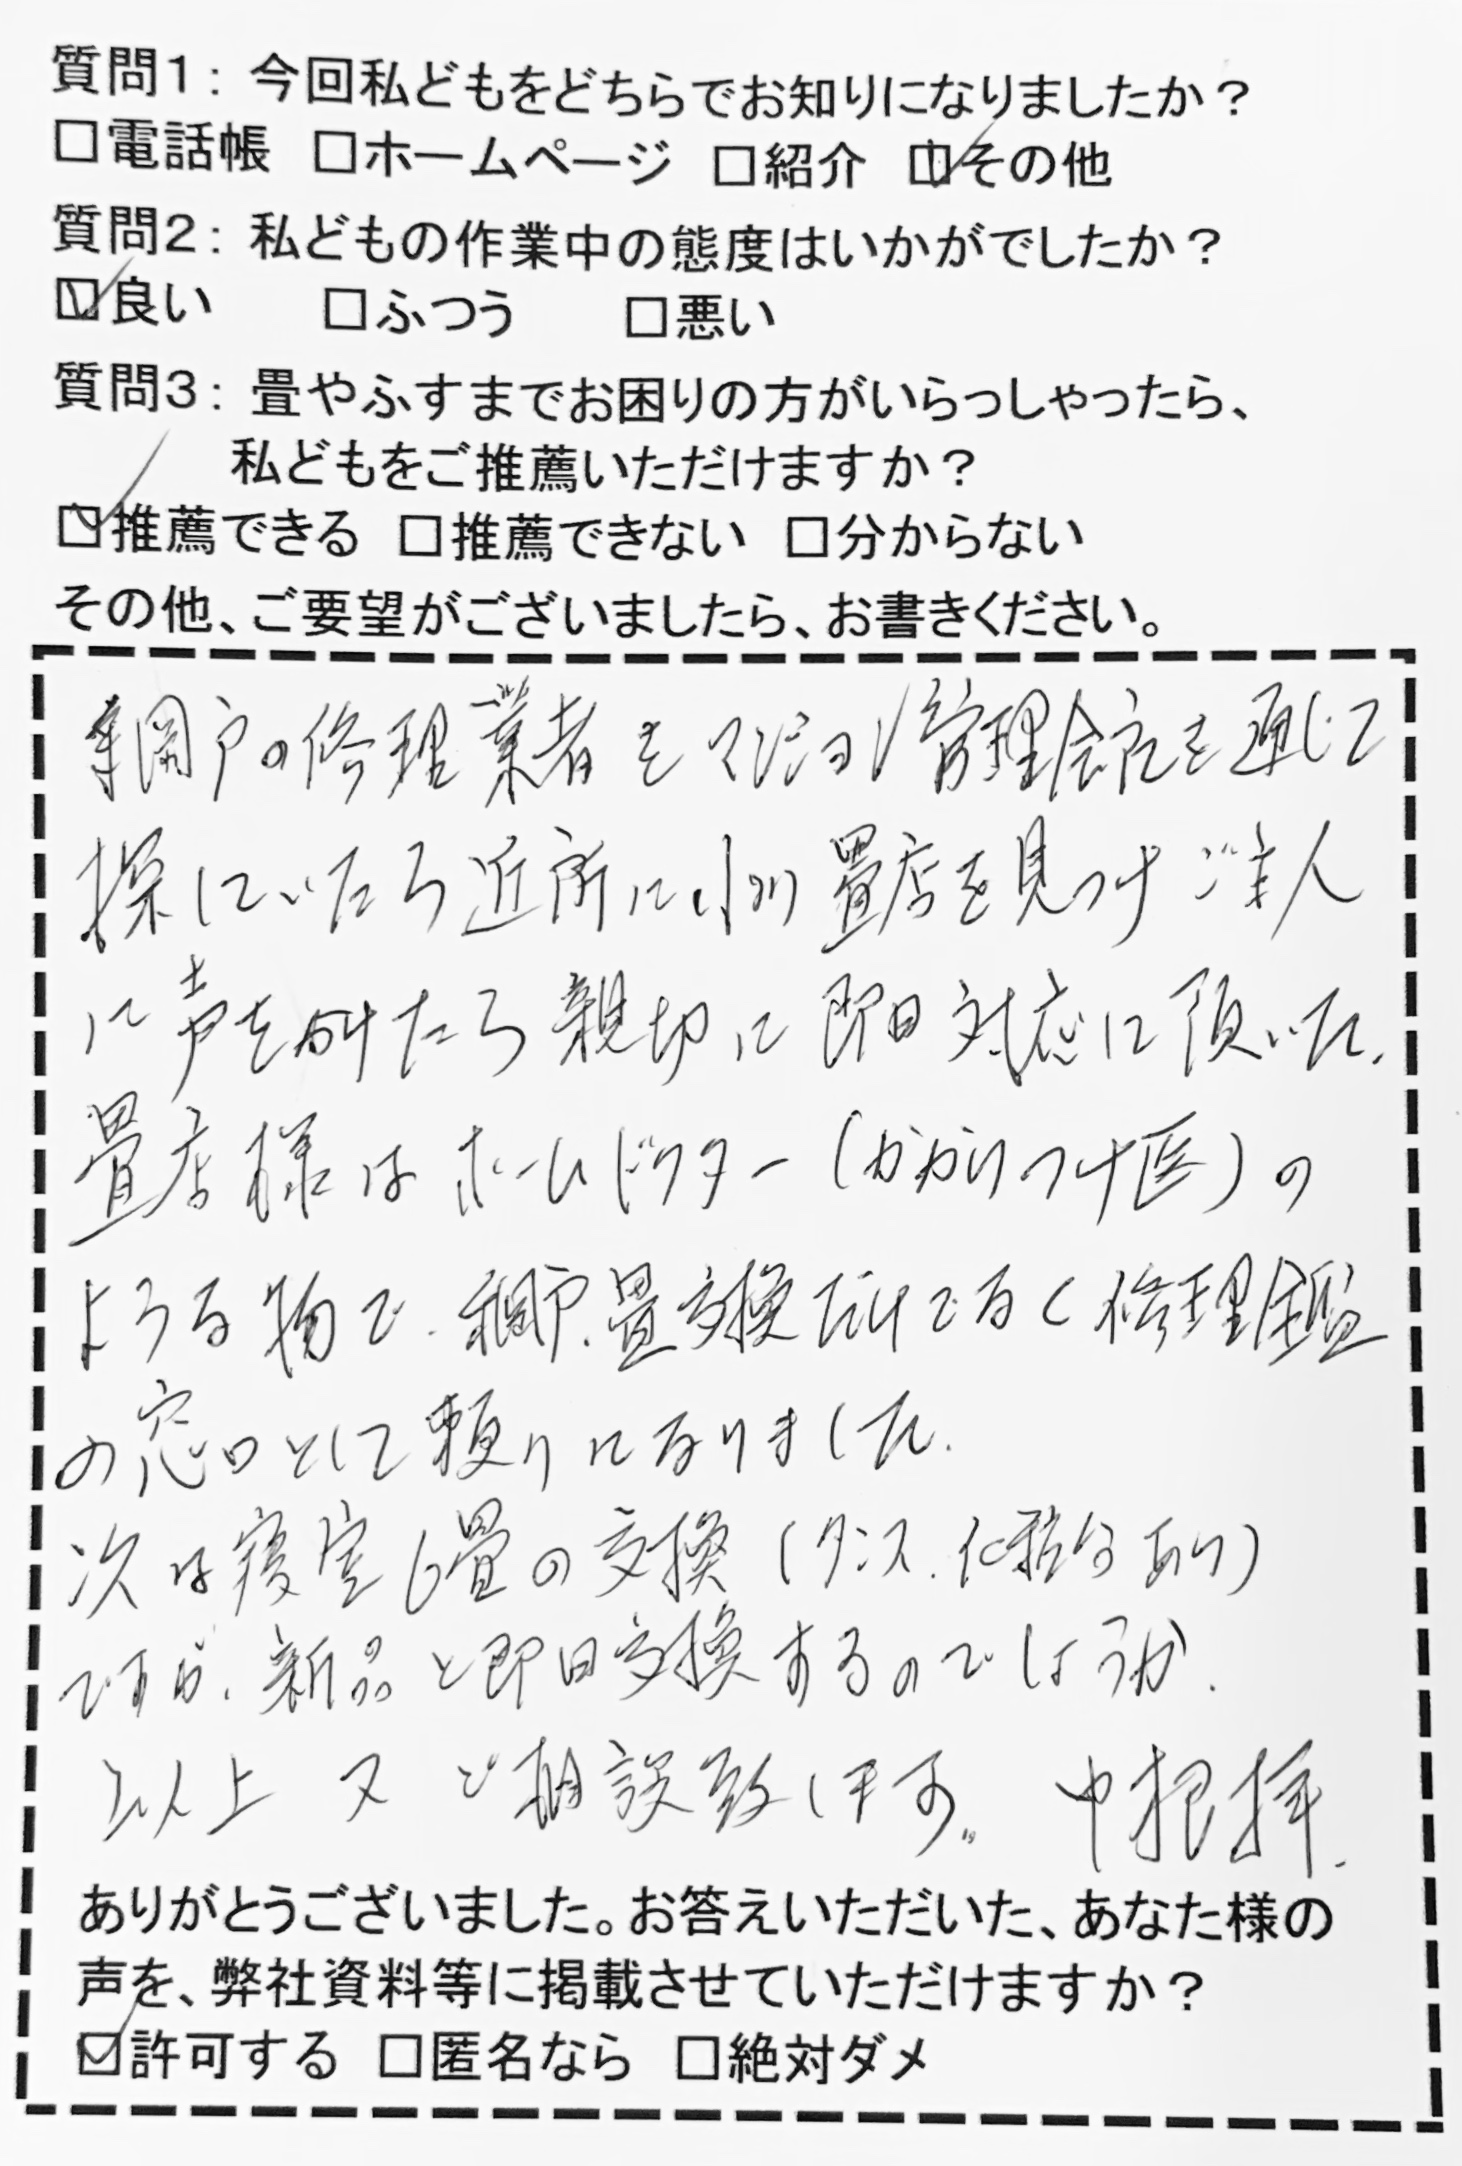 質問1: 今回私どもをどちらでお知りになりましたか?
□電話帳 □ホームページ □紹介 ☑その他
質問2: 私どもの作業中の態度はいかがでしたか?
☑良い □ふつう □悪い
質問3: 畳やふすまでお困りの方がいらっしゃったら、
私どもをご推薦いただけますか?
☑推薦できる □推薦できない □分からない
その他、ご要望がございましたら、お書きください。
網戸の修理業者をマンション管理会社を通じて
探していたら近所に小川畳店を見つけご主人
に声をかけたら親切に即日対応に頂いた.
畳店様はホームドクター(かかりつけ医)の
ような物で.網戸.畳交換だけでなく修理
の窓口として頼りになりました.
次は寝室6畳の交換(タンス.化粧台あり)
ですが.新品と即日交換するのでしょうか.
以上 又ご相談致します。 中根拝.
ありがとうございました。お答えいただいた、あなた様の
声を、弊社資料等に掲載させていただけますか?
☑許可する □匿名なら □絶対ダメ